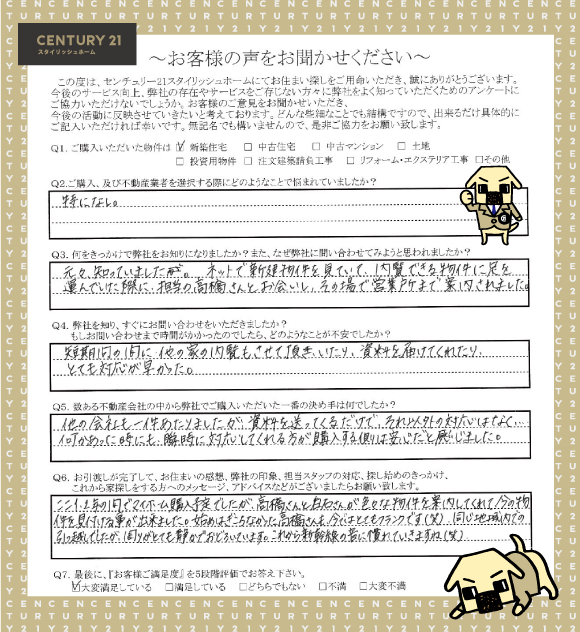 CENTURY 21
スタイリッシュホーム
～お客様の声をお聞かせください～
この度は、センチュリー21スタイリッシュホームにてお住まい探しをご用命いただき、誠にありがとうございます。
今後のサービス向上、弊社の存在やサービスをご存じない方々に弊社をよく知っていただくためのアンケートに
ご協力いただけないでしょうか。お客様のご意見をお聞かせいただき、
今後の活動に反映させていきたいと考えております。どんな些細なことでも結構ですので、出来るだけ具体的に
ご記入いただければ幸いです。無記名でも構いませんので、是非ご協力をお願い致します。
Q1. ご購入いただいた物件は ☑ 新築住宅 □ 中古住宅 □ 中古マンション □ 土地
□ 投資用物件 □ 注文建築請負工事 □ リフォーム・エクステリア工事 □その他
Q2.ご購入、及び不動産業者を選択する際にどのようなことで悩まれていましたか？
特になし。
Q3. 何をきっかけで弊社をお知りになりましたか？また、なぜ弊社に問い合わせてみようと思われましたか？
元々、知っていましたが。ネットで新建物件を見ていて、内覧できる物件に足を
運んでいた際に、担当の高橋さんとお会いし、その場で営業所まで案内されました。
Q4. 弊社を知り、すぐにお問い合わせをいただきましたか？
もしお問い合わせまで時間がかかったのでしたら、どのようなことが不安でしたか？
短期間の間に他の家の内覧もさせて頂き、いたり、資料を届けてくれたり、
とても対応が早かった。
Q5. 数ある不動産会社の中から弊社でご購入いただいた一番の決め手は何でしたか？
他の会社も一件あたりましたが、資料を送ってくるだけで、それ以外の対応はなく…
何かあった時にも、瞬時に対応してくれる方が購入する側は安心だと感じました。
Q6. お引渡しが完了して、お住まいの感想、弊社の印象、担当スタッフの対応、探し始めのきっかけ、
これから家探しをする方へのメッセージ、アドバイスなどがございましたらお願い致します。
ここ1、2年の間でマイホーム購入予定でしたが、高橋さんと白石さんが色々な物件を案内してくれて、今の物
件を見付ける事が出来ました。始めはぎこちなかった高橋さんも、今ではとてもフランクです(笑) 同じ地域内での
引っ越しでしたが、周りがとても静かでおどろいています。これから新幹線の音に慣れていきますね(笑)
Q7. 最後に、『お客様ご満足度』を5段階評価でお答え下さい。
☑大変満足している □満足している □どちらでもない □不満 □大変不満